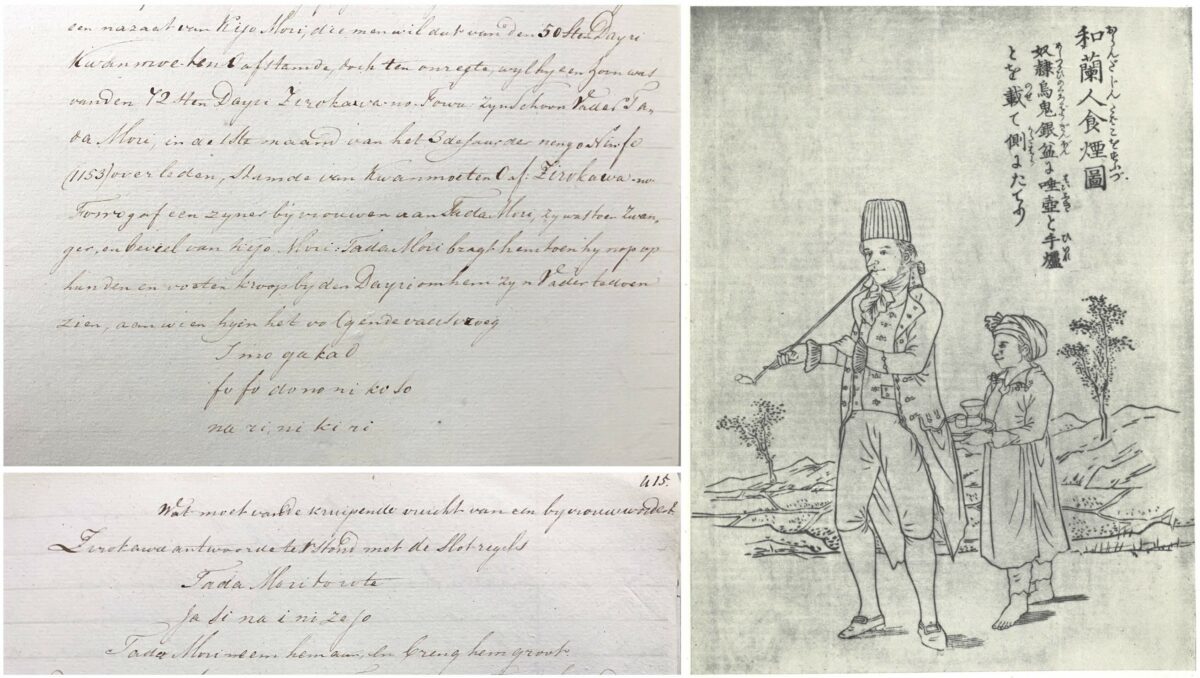 een nazaat van Kijo Mori, die men wil dat van den 50sten Dayri
Kwanmoe-ten O afstamde, doch ten onregte, wyl hy een zoon was
van den 72sten Dayri Zirokawa-no-Fowo zyn Schoon Vader Ta-
da Mori, in de 1ste maand van het 3de Jaar der nengo
(1153) overleden, Stamde van Kwanmoeten O af: Zirokawa-no
gaf een zyner bijvrouwen aan Tada Mori, zy was toen Zwan-
ger, en beviel van Kijo Mori: Tada Mori bragt hem toen hy nog op
handen en voeten kroop by den Dayri om hem zyn Vader te doen
zien, aan wien hy in het volgende vaers vroeg
I mo ga ka O
fo fo do no ni ko so
na ri, ni ki ri
415.
Wat moet van de kruipende vrucht van een byvrouw worden
Zirokawa antwoorde terstond met de Slotregels
Tada Mori to rote
Ja si na i ni ze jo
Tada Mori neem hem aan, en breng hem groot
和蘭人食煙圖
奴隷烏鬼銀盆に唾壺と手爐
とを載て側にたてり